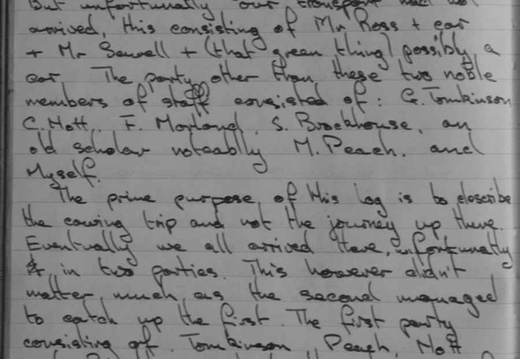 But unfortunately our transport had not
arrived, this consisting of Mr Ross + car
+ Mr Sewell + (that green thing) possibly a
car. The party other than these two noble
members of staff consisted of: G. Tomkinson
C. Mott, F. Morland, S. Brockhouse, an
old scholar noteably M. Peach. and
Myself.
The prime purpose of this log is to describe
the caving trip and not the journey up there.
Eventually we all arrived there, unfortunately
in two parties. This however didn't
matter much as the second managed
to catch up the first. The first party
consisting of. Tomkinson, Peach, Mott